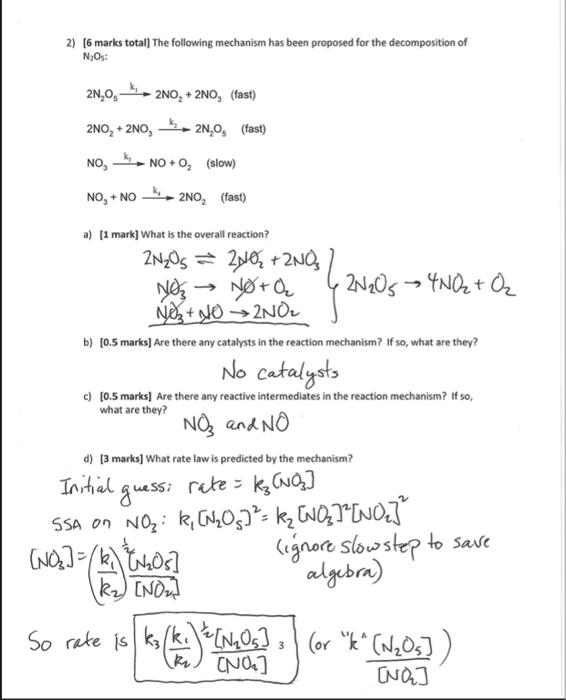 2) [6 marks total] The following mechanism has been proposed for the decomposition of
N₂O₅:
2N₂O₅ —k₁→ 2NO₂ + 2NO₃ (fast)
2NO₂ + 2NO₃ —k₂→ 2N₂O₅ (fast)
NO₃ —k₃→ NO + O₂ (slow)
NO₃ + NO —k₄→ 2NO₂ (fast)
a) [1 mark] What is the overall reaction?
2N₂O₅ ⇌ 2NO₂ + 2NO₃
NO₃ → NO + O₂ } 2N₂O₅ → 4NO₂ + O₂
NO₃ + NO → 2NO₂
b) [0.5 marks] Are there any catalysts in the reaction mechanism? If so, what are they?
No catalysts
c) [0.5 marks] Are there any reactive intermediates in the reaction mechanism? If so,
what are they?
NO₃ and NO
d) [3 marks] What rate law is predicted by the mechanism?
Initial guess: rate = k₃[NO₃]
SSA on NO₃: k₁[N₂O₅]² = k₂[NO₃]²[NO₂]²
(ignore slow step to save
algebra)
[NO₃] = (k₁/k₂)^½ [N₂O₅]/[NO₂]
So rate is k₃(k₁/k₂)^½ [N₂O₅]/[NO₂], (or "k" [N₂O₅]/[NO₂])